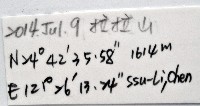 2014.Jul.9 拉拉山
N24° 42' 35.58" 1614m
E121° 26' 13.24" Ssu-Li, Chen